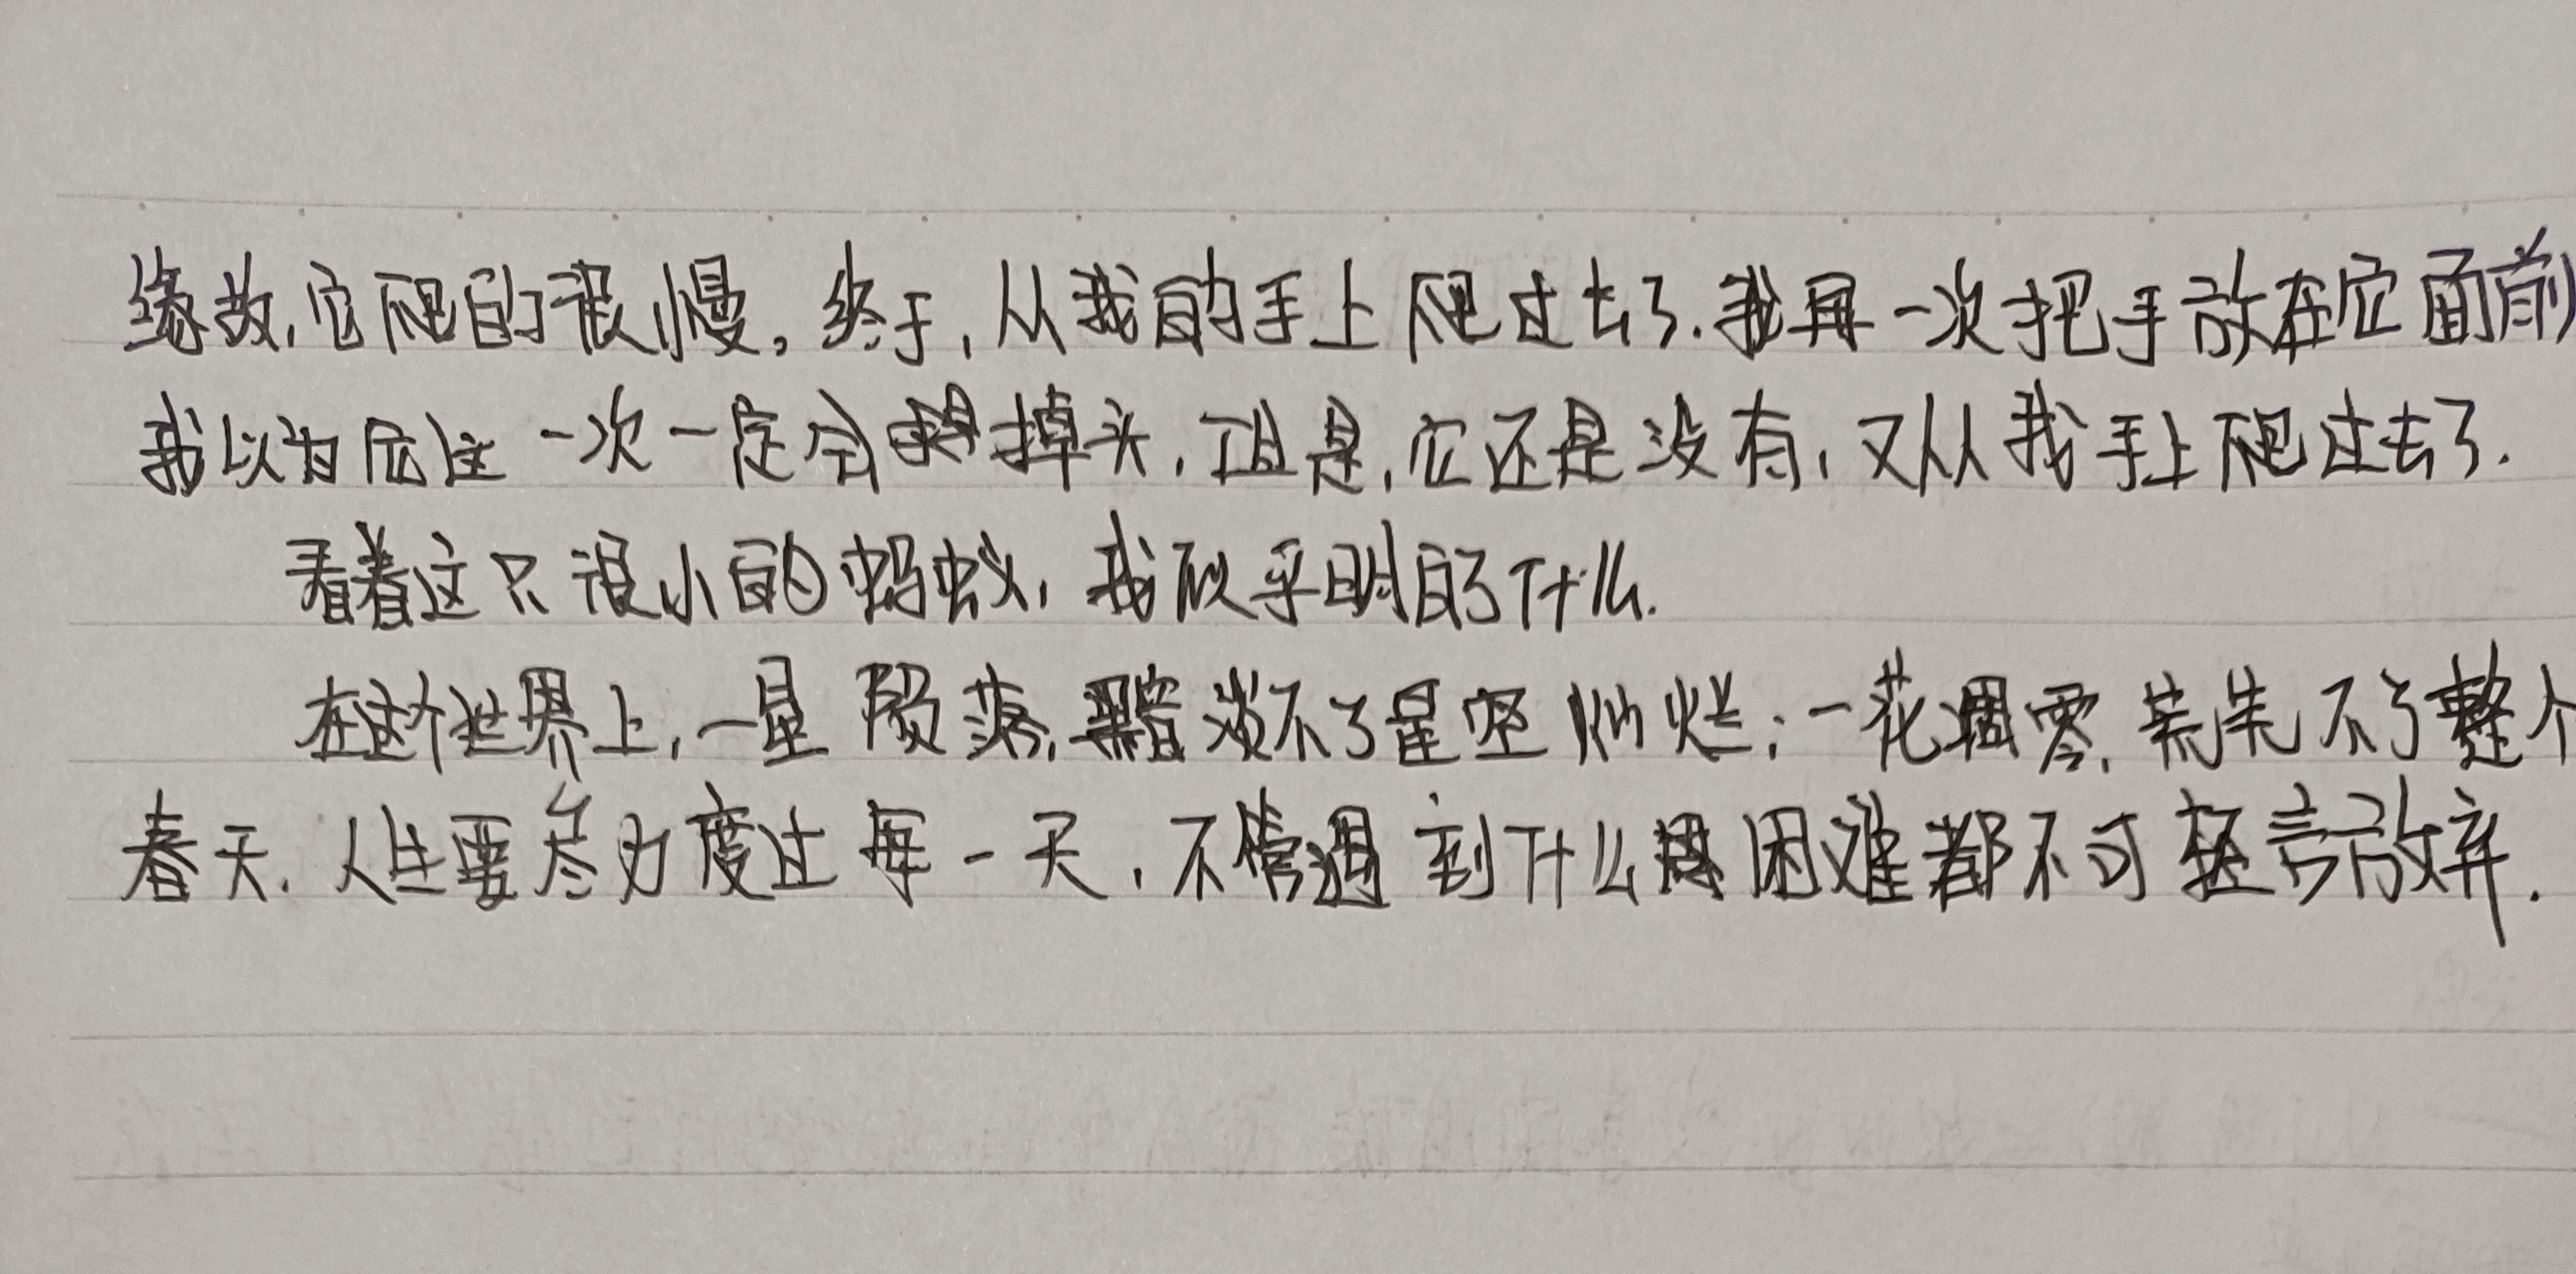 缘故,它爬的很慢。终于,从我的手上爬过去了.我再一次把手放在它面前
我以为它这一次一定会掉头.但是,它还是没有,又从我手上爬过去了.
看着这只很小的蚂蚁,我似乎明白了什么.
在这个世界上,一星陨落,黯淡不了星空灿烂;一花凋零,荒芜不了整个
春天.人生要尽力度过每一天,不管遇到什么困难都不可轻言放弃.